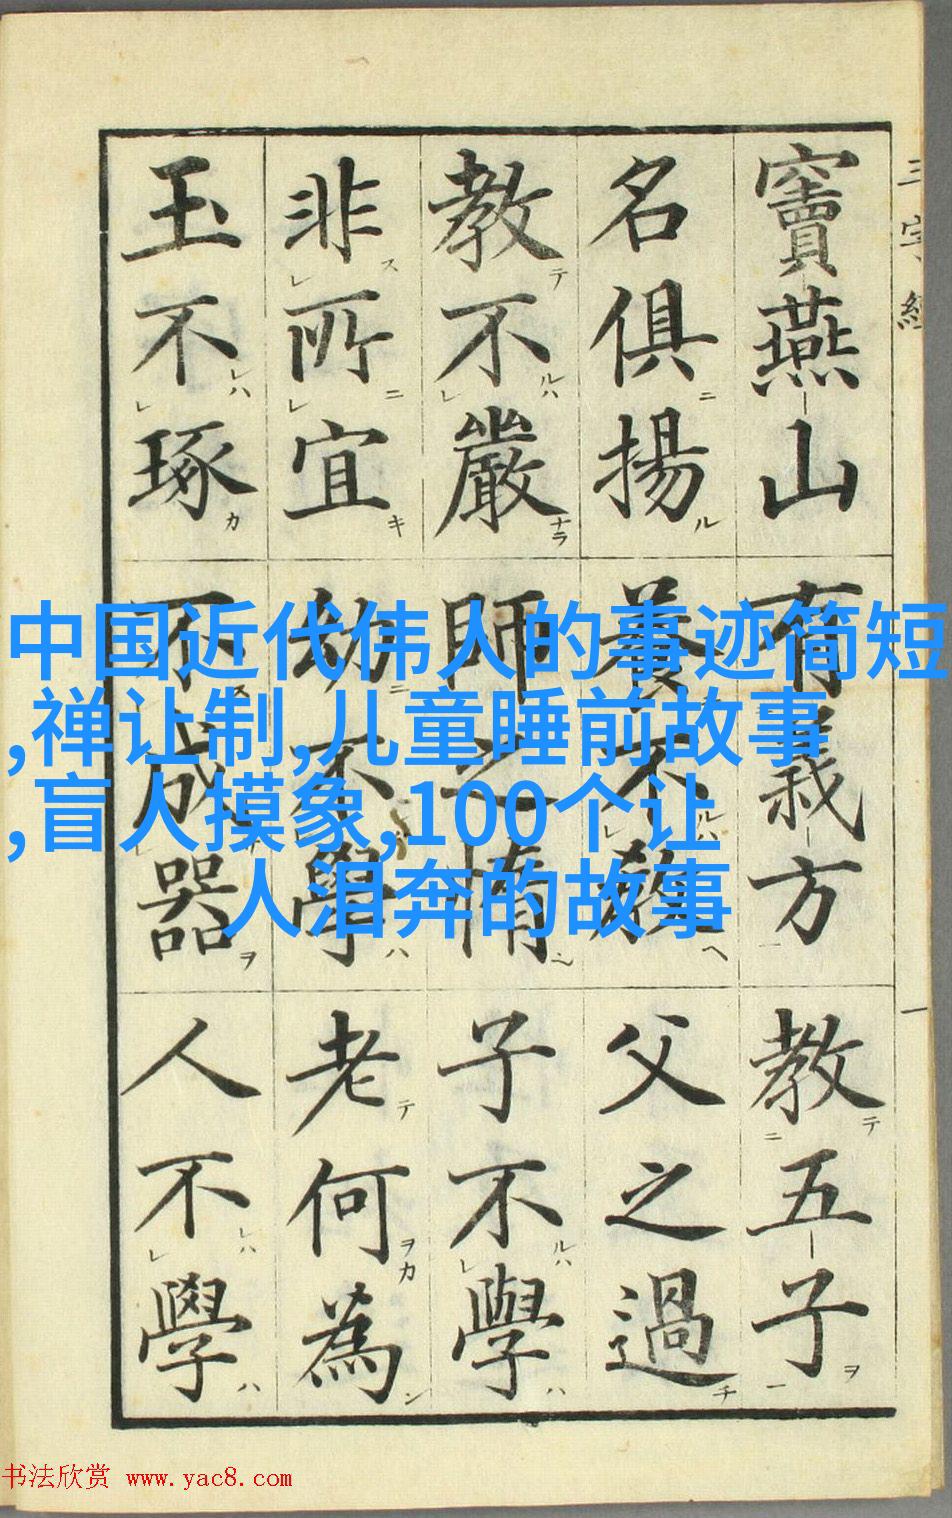 三字經
一
竇燕山有義方教五子
名俱揚養不教父之過
教不嚴師之惰子不學
非所宜幼不學老何為
玉不琢不成器人不學
中国近代伟人的事迹简短
,禅让制,儿童睡前故事
,盲人摸象,100个让
人泪奔的故事
书法欣赏 www.yac8.com